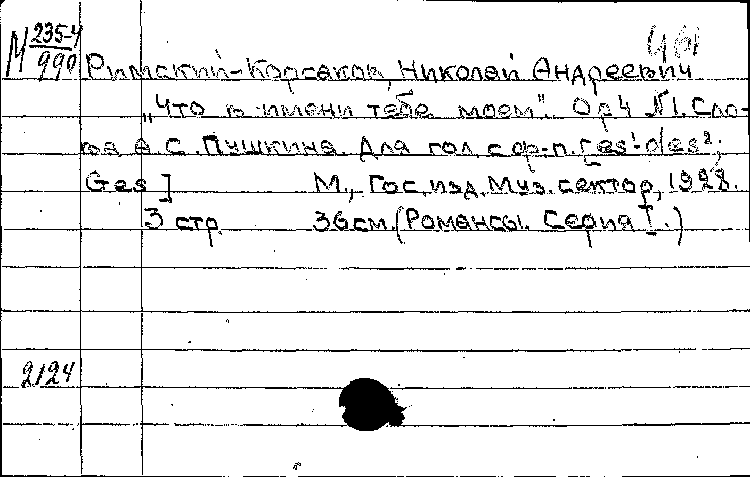 М 235-4
990
461
Римский-Корсаков, Николай Андреевич
„Что в имени тебе моем". Op 4 №1. Сло-
ва А. С. Пушкина. Для гол. с ф-п. [es¹-des²;
Ges]
М., Гос. изд. Муз. сектор, 1928.
3 стр. 36 см. (Романсы. Серия I.)
2124